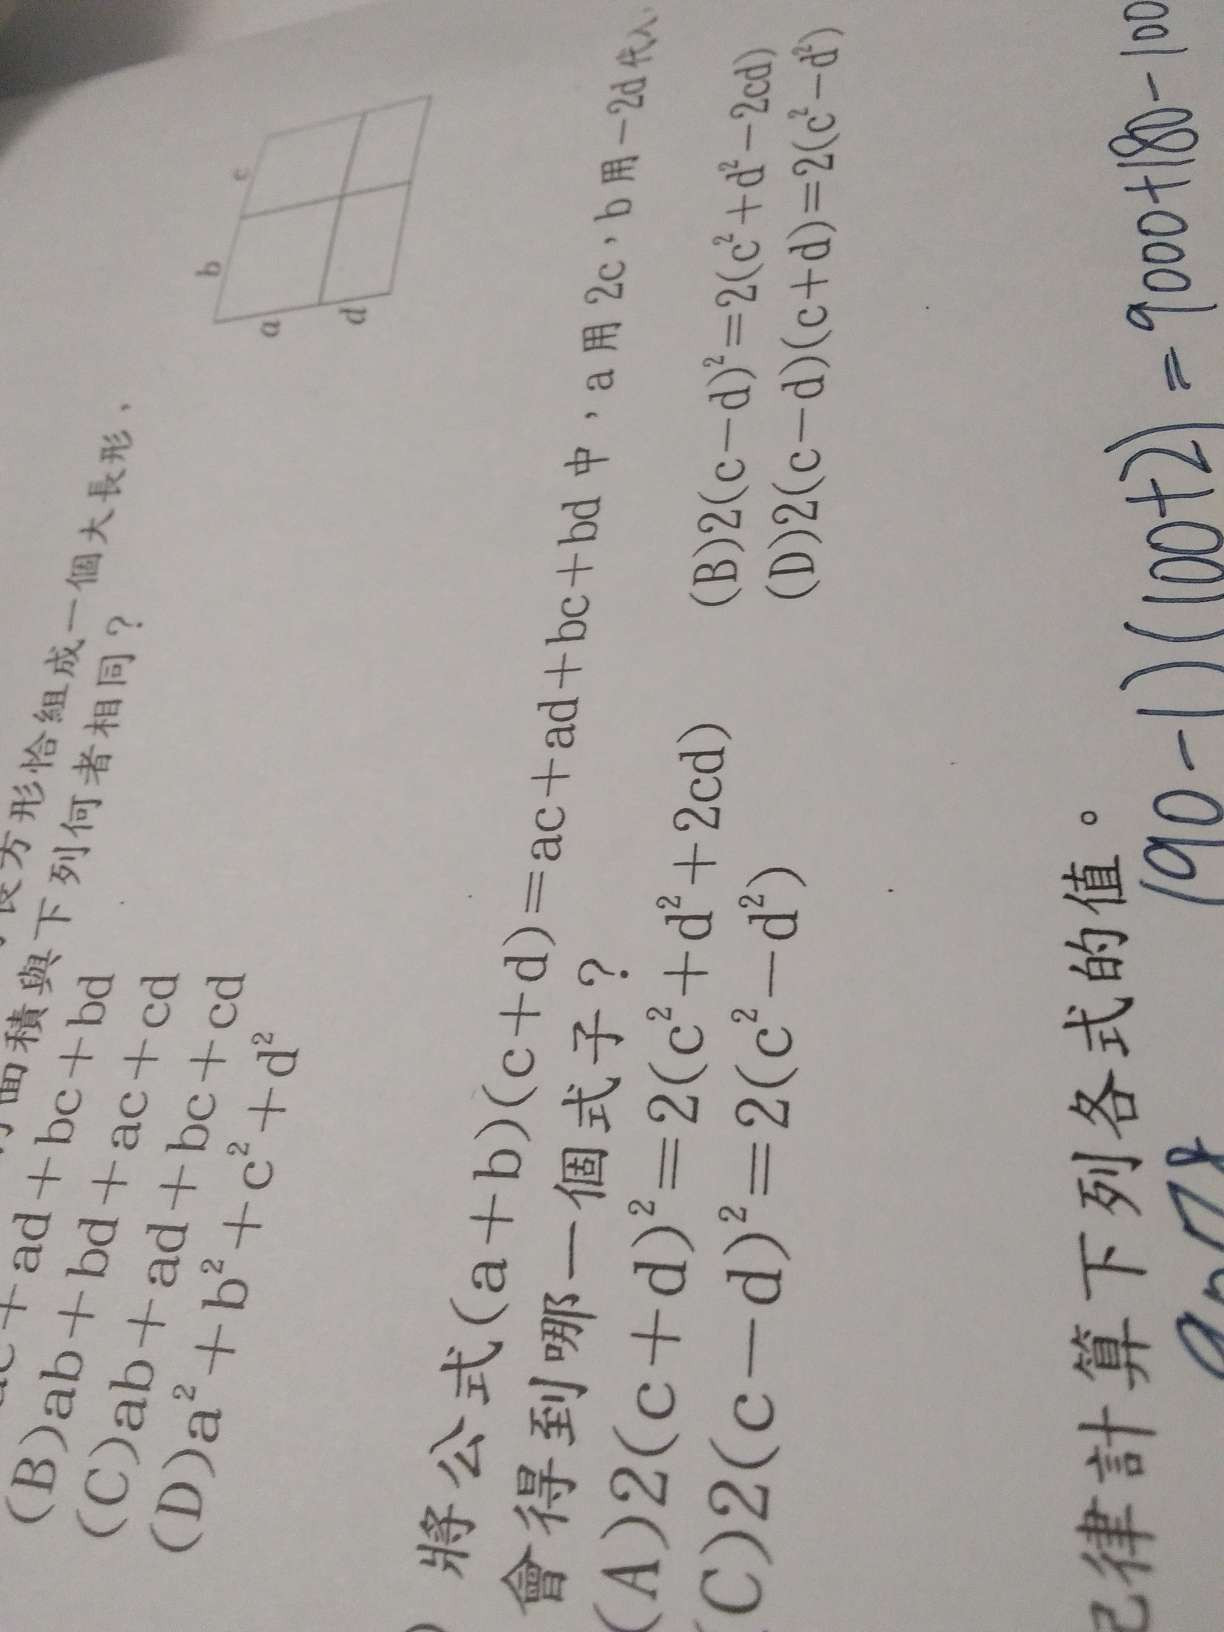 長方形恰組成一個大長形，
面積與下列何者相同？
ac+ad+bc+bd
(B)ab+bd+ac+cd
(C)ab+ad+bc+cd
(D)a²+b²+c²+d²
b c
a
d
將公式(a+b)(c+d)=ac+ad+bc+bd中，a用2c，b用-2d代入，
會得到哪一個式子？
(A)2(c+d)²=2(c²+d²+2cd) (B)2(c-d)²=2(c²+d²-2cd)
(C)2(c-d)²=2(c²-d²) (D)2(c-d)(c+d)=2(c²-d²)
律計算下列各式的值。
(90-1)(100+2)=9000+180-100